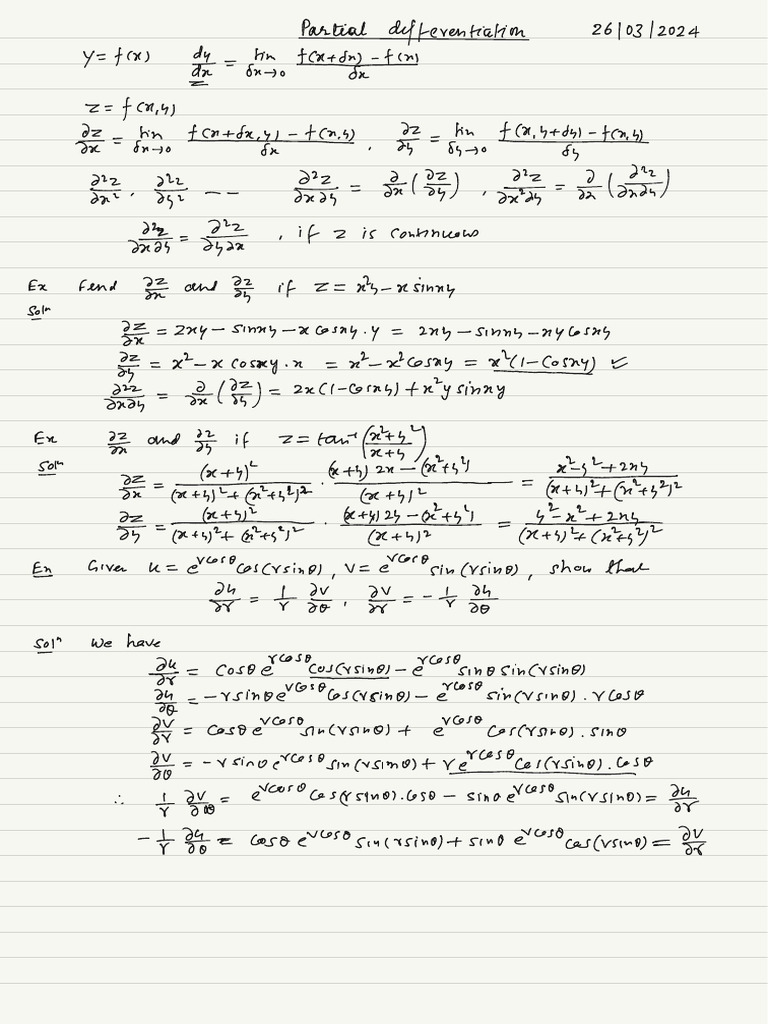 Partial differentiation 26/03/2024
y = f(x) dy/dx = lim δx→0 (f(x+δx) − f(x))/δx
z = f(x,y)
∂z/∂x = lim δx→0 (f(x+δx,y) − f(x,y))/δx , ∂z/∂y = lim δy→0 (f(x,y+δy) − f(x,y))/δy
∂²z/∂x² , ∂²z/∂y² -- ∂²z/∂x∂y = ∂/∂x (∂z/∂y) , ∂²z/∂x²∂y = ∂/∂x (∂²z/∂x∂y)
∂²z/∂x∂y = ∂²z/∂y∂x , if z is continuous
Ex Find ∂z/∂x and ∂z/∂y if z = x²y − x sinxy
Solⁿ
∂z/∂x = 2xy − sinxy − x cosxy . y = 2xy − sinxy − xy cosxy
∂z/∂y = x² − x cosxy . x = x² − x² cosxy = x²(1 − cosxy) ✓
∂²z/∂x∂y = ∂/∂x (∂z/∂y) = 2x(1 − cosxy) + x²y sinxy
Ex ∂z/∂x and ∂z/∂y if z = tan⁻¹((x²+y²)/(x+y))
Solⁿ
∂z/∂x = (x+y)²/((x+y)²+(x²+y²)²) . ((x+y)2x − (x²+y²))/(x+y)² = (x²−y²+2xy)/((x+y)²+(x²+y²)²)
∂z/∂y = (x+y)²/((x+y)²+(x²+y²)²) . ((x+y)2y − (x²+y²))/(x+y)² = (y²−x²+2xy)/((x+y)²+(x²+y²)²)
Ex Given u = e^(rcosθ) cos(rsinθ), v = e^(rcosθ) sin(rsinθ), show that
∂u/∂r = 1/r ∂v/∂θ , ∂v/∂r = −1/r ∂u/∂θ
Solⁿ We have
∂u/∂r = cosθ e^(rcosθ) cos(rsinθ) − e^(rcosθ) sinθ sin(rsinθ)
∂u/∂θ = −r sinθ e^(rcosθ) cos(rsinθ) − e^(rcosθ) sin(rsinθ) . r cosθ
∂v/∂r = cosθ e^(rcosθ) sin(rsinθ) + e^(rcosθ) cos(rsinθ) . sinθ
∂v/∂θ = −r sinθ e^(rcosθ) sin(rsinθ) + r e^(rcosθ) cos(rsinθ) . cosθ
∴ 1/r ∂v/∂θ = e^(rcosθ) cos(rsinθ) . cosθ − sinθ e^(rcosθ) sin(rsinθ) = ∂u/∂r
−1/r ∂u/∂θ = cosθ e^(rcosθ) sin(rsinθ) + sinθ e^(rcosθ) cos(rsinθ) = ∂v/∂r